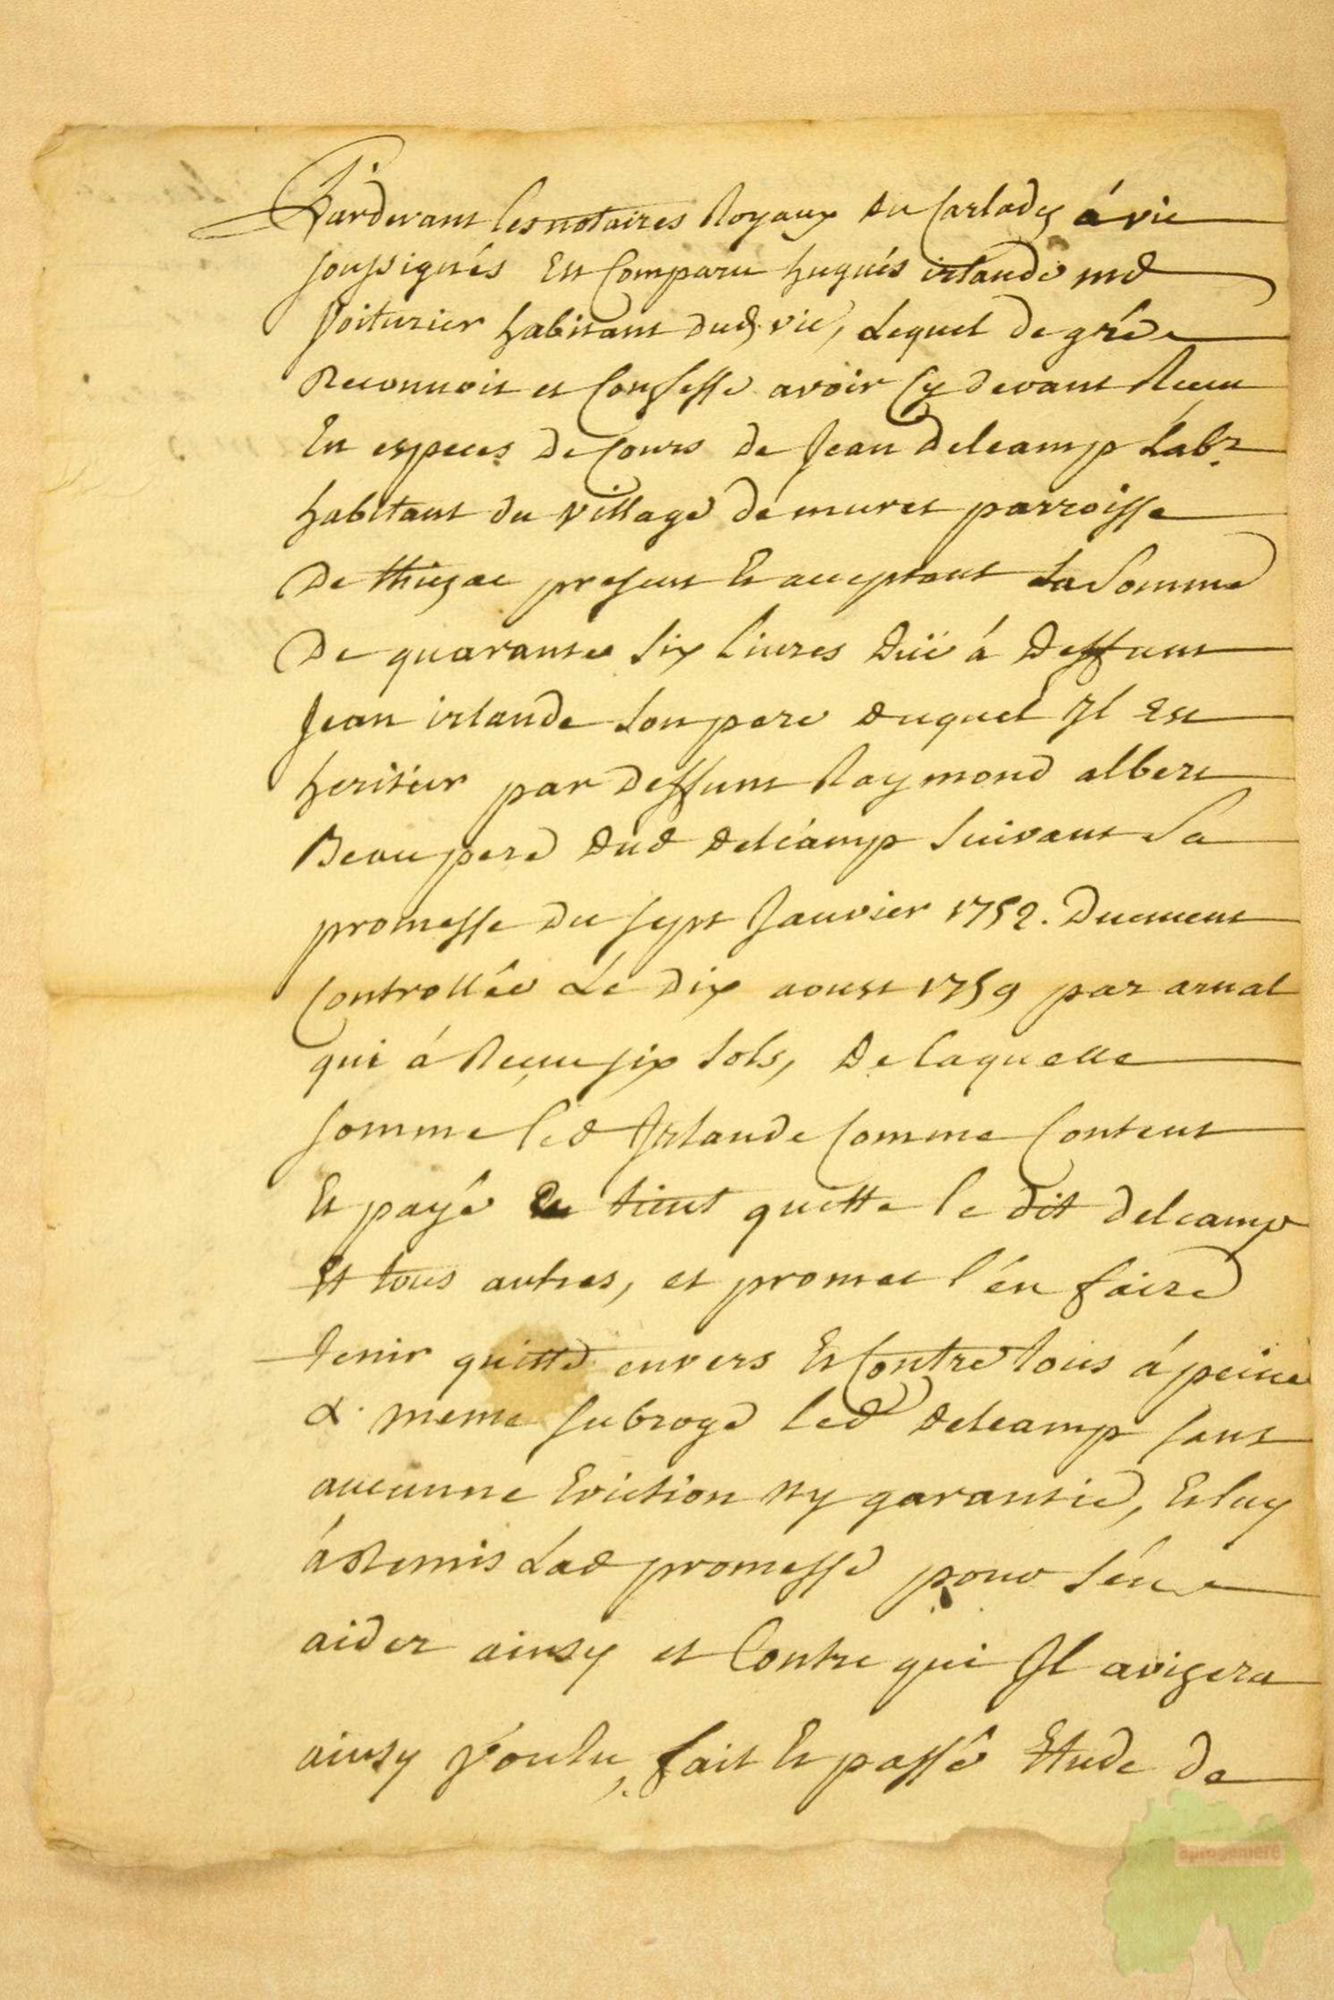 Pardevant les notaires Royaux du Carladés á vic
soussignés Est Comparu huguês irlande md
Voiturier habitant dud. vic, Lequel de gré
Reconnoit et Confesse avoir Cy devant Reçeu
En especes de Cours de Jean delcamp Labr
habitant du village de muret parroisse
De thiezac present Et acceptant La Somme
De quarante six livres düe á deffunt
Jean irlande son pere duquel Il Est
heritier par deffunt Raymond albert
Beaupere dud delcamp suivant sa
promesse du sept Janvier 1752. Duement
Controllée Le dix aoust 1759 par arnal
qui á Reçeu six sols, de laquelle
somme led Irlande Comme Content
Et payé tient quitte le dit delcamp
Et tous autres, et promet l'én faire
tenir quitte envers Et Contre tous á peine
&. meme subroge led delcamp sans
aucunne Eviction ny garantie, Et luy
á Remis Lad promesse pour s'én
aider ainsy et Contre qui Il avizera
ainsy Voulu, fait Et passé Etude de
aprogemere